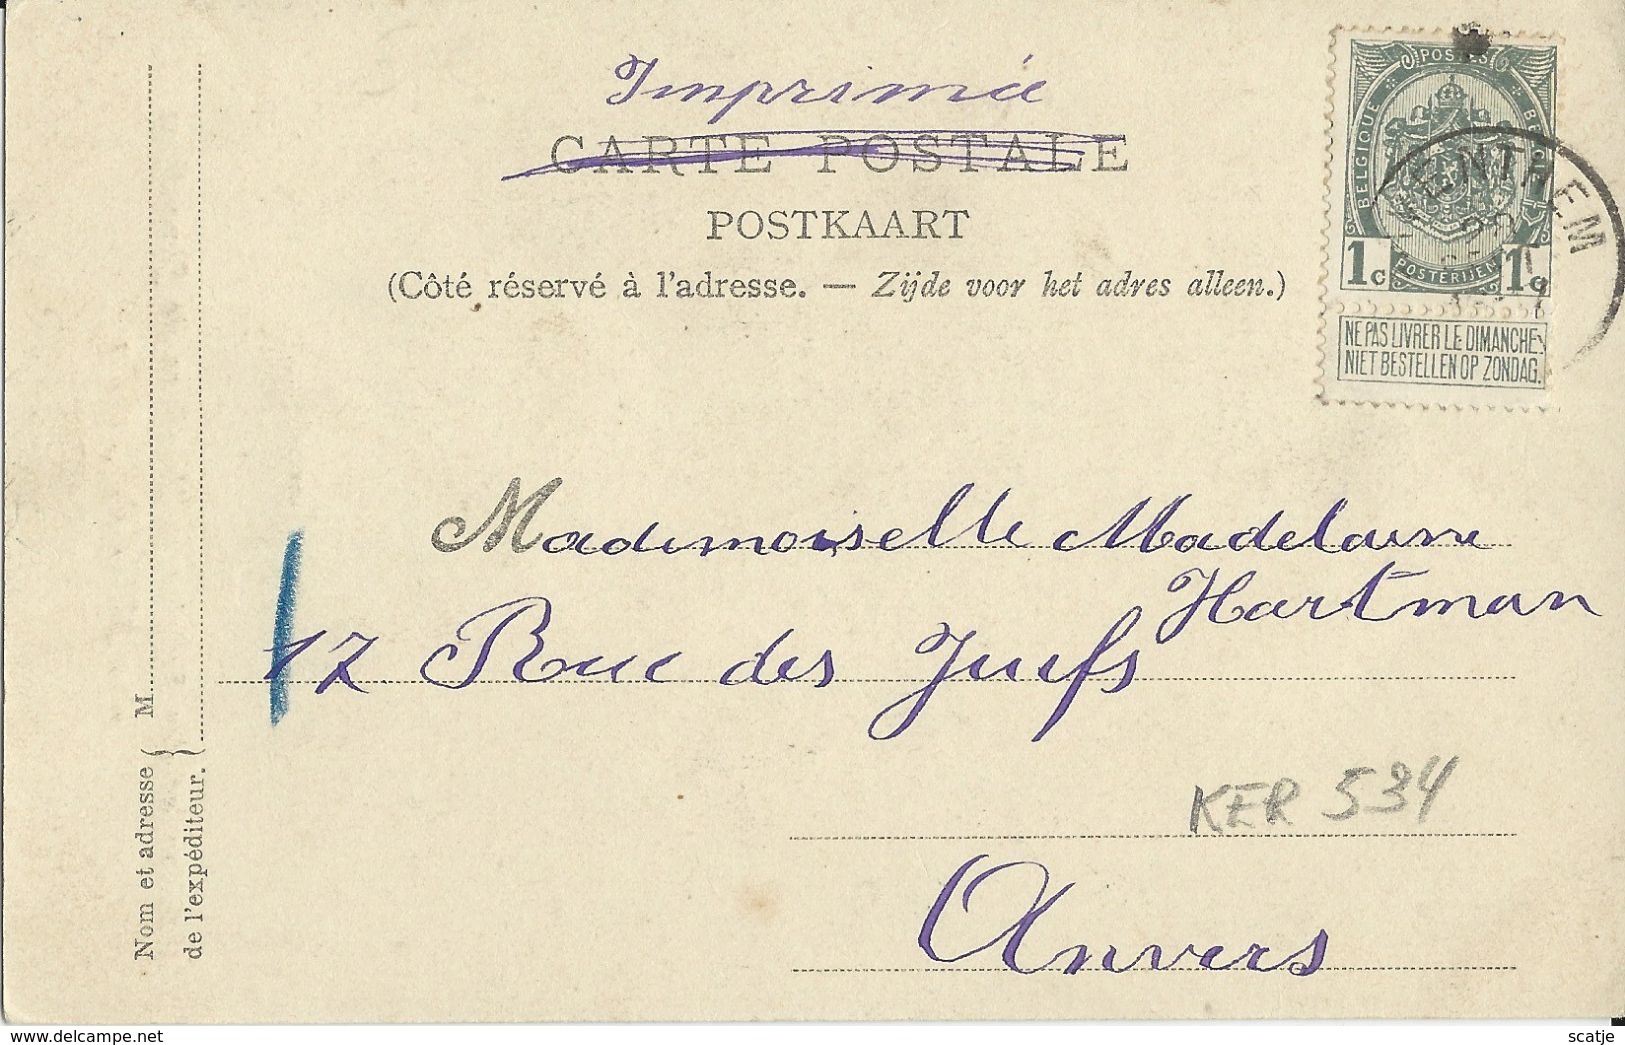 Imprimée
CARTE POSTALE
POSTKAART
(Côté réservé à l'adresse. — Zijde voor het adres alleen.)
POSTES
BELGIQUE
POSTERIJEN
1c 1c
NE PAS LIVRER LE DIMANCHE
NIET BESTELLEN OP ZONDAG.
Mademoiselle Madelaine
Hartman
17 Rue des Juifs
KER 534
Anvers
Nom et adresse
de l'expéditeur.
M
delcampe.net
scatje